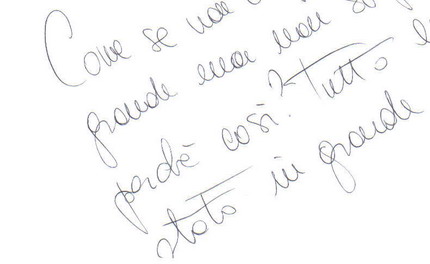 Come se non
grande ma non so
perchè così? Tutto
stato in grande